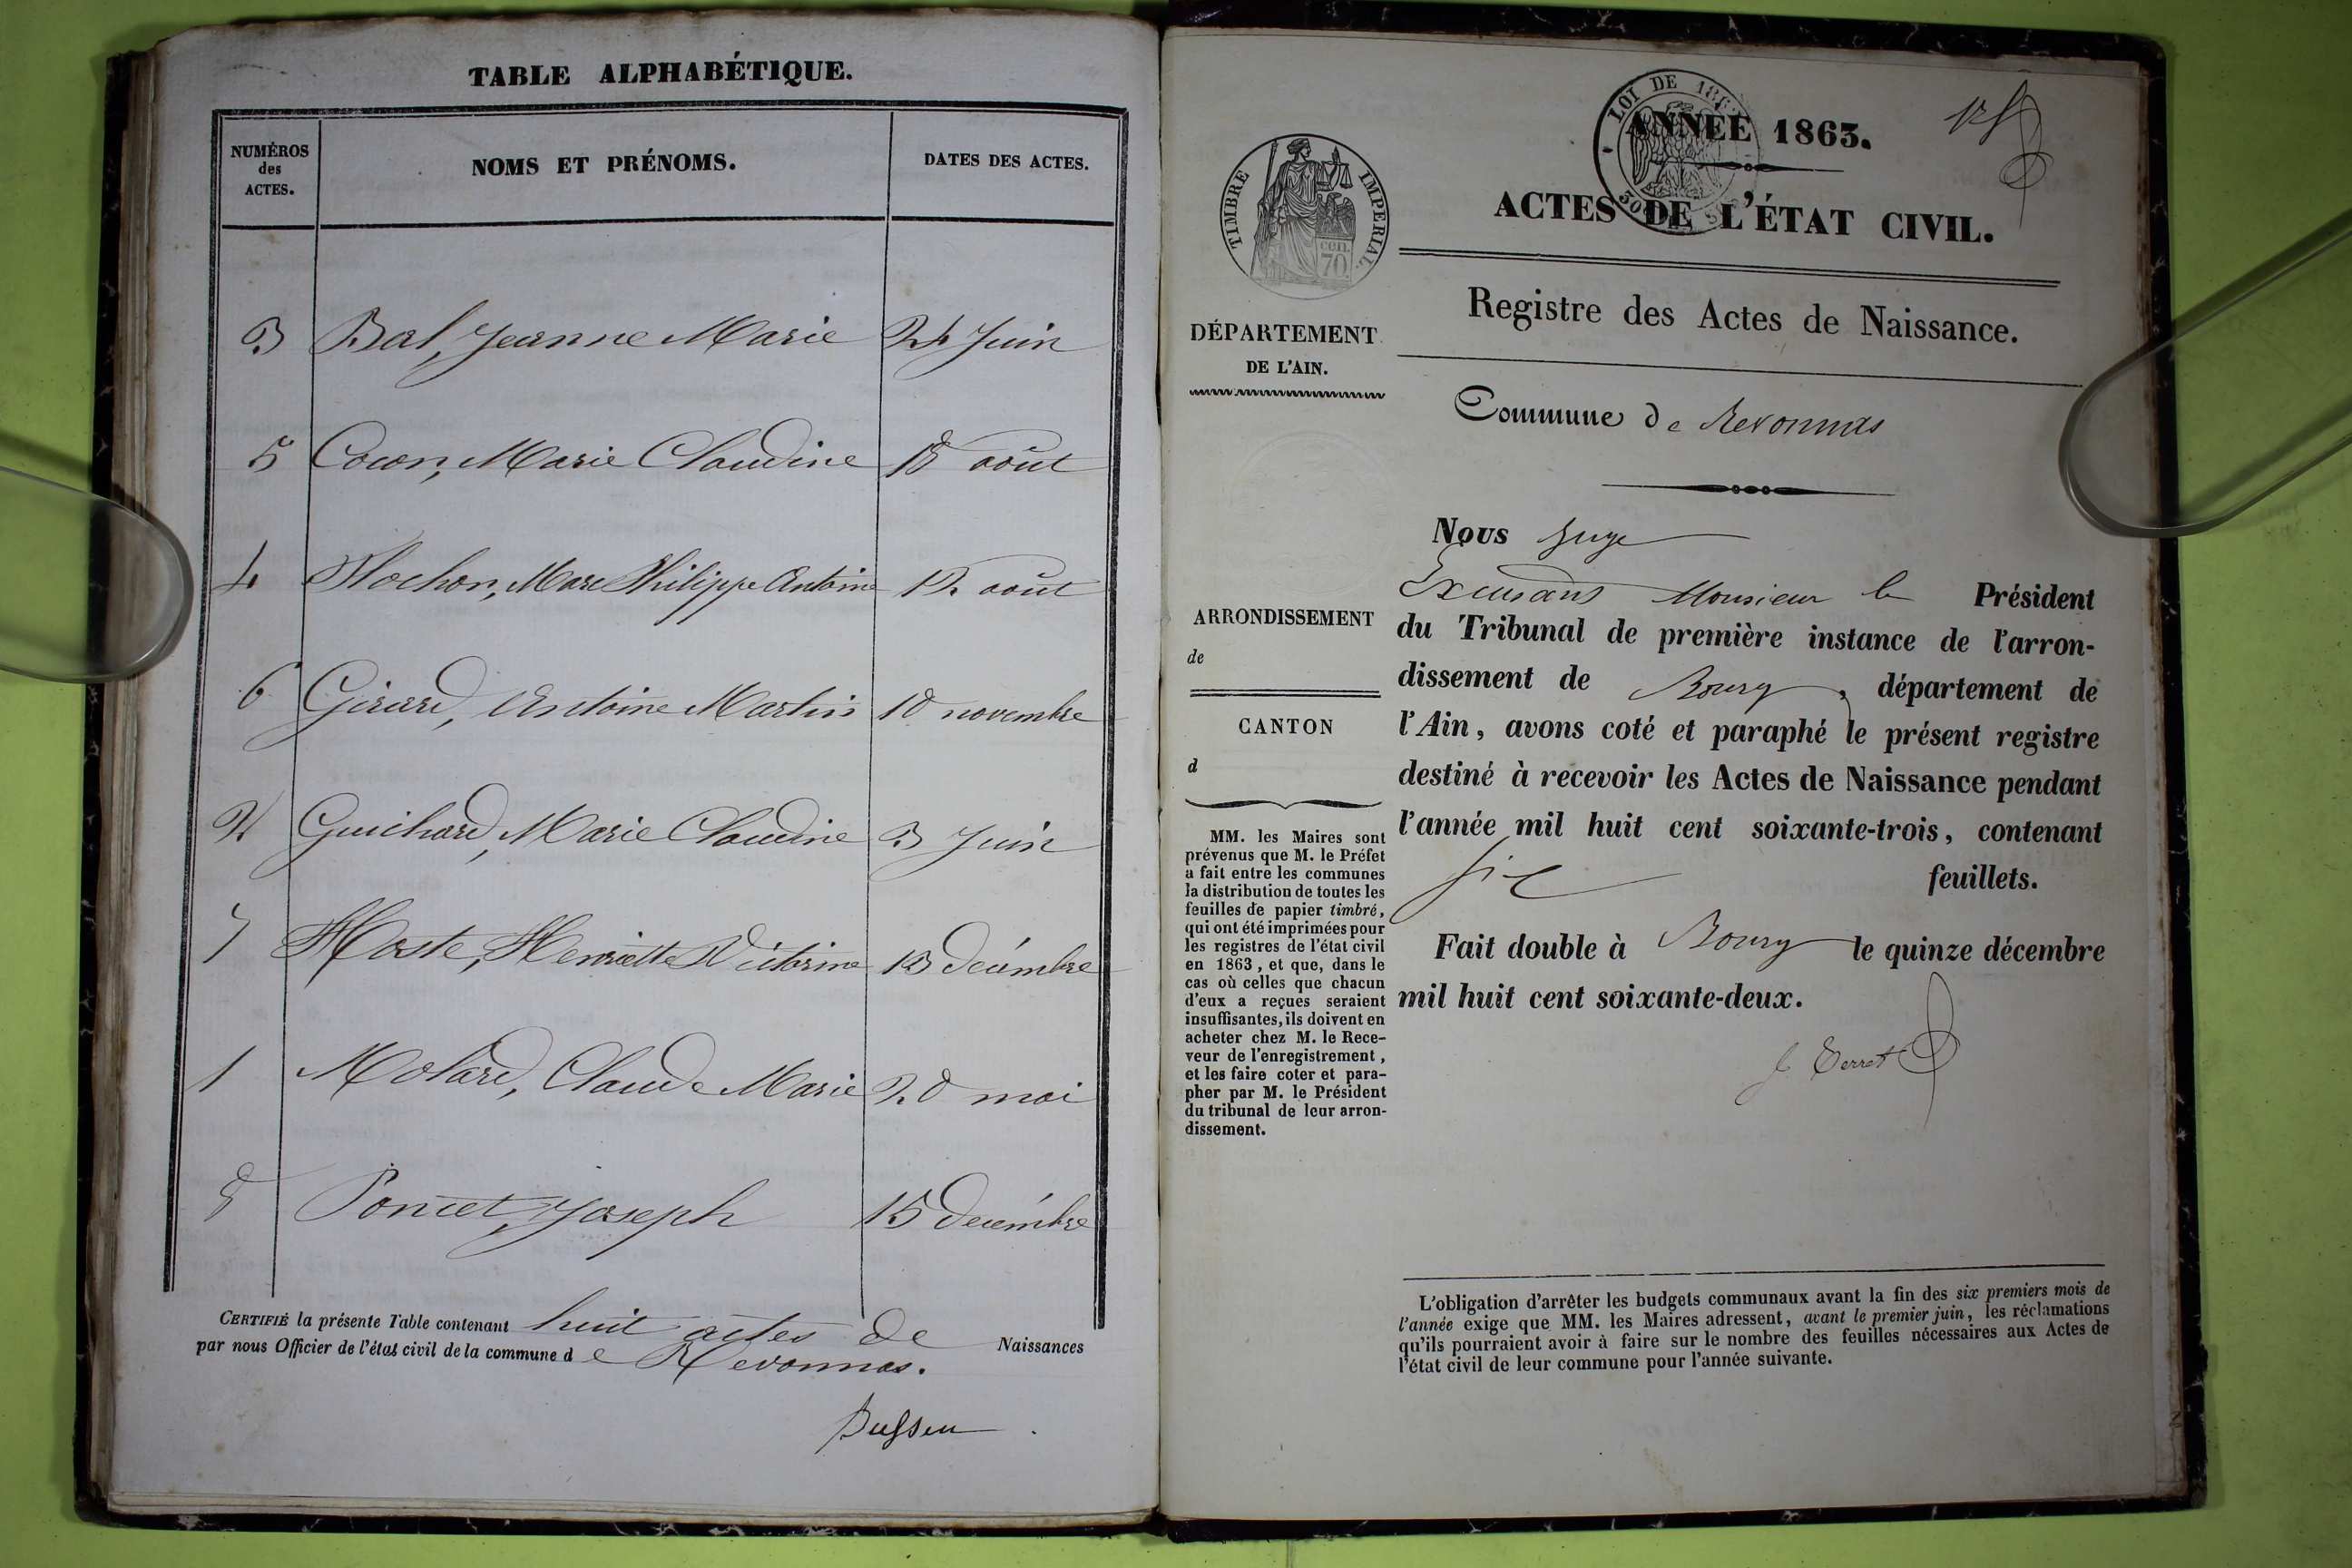 TABLE ALPHABÉTIQUE.
NUMÉROS des ACTES.
NOMS ET PRÉNOMS.
DATES DES ACTES.
3 Bal, Jeanne Marie 24 Juin
5 Cocon, Marie Claudine 18 août
4 Flochon, Marc Philippe Antoine 12 août
6 Girard, Antoine Martin 18 novembre
2 Guichard, Marie Claudine 3 Juin
7 Hoste, Henriette Victorine 13 décembre
1 Molard, Claude Marie 28 mai
8 Poncet, Joseph 15 décembre
CERTIFIÉ la présente Table contenant huit actes de Naissances
par nous Officier de l'état civil de la commune de Revonnas.
TIMBRE IMPERIAL
cen.
70.
LOI DE 186
ANNÉE 1863.
ACTES DE L'ÉTAT CIVIL.
Registre des Actes de Naissance.
Commune de Revonnas
DÉPARTEMENT
DE L'AIN.
ARRONDISSEMENT
de
CANTON
d
MM. les Maires sont
prévenus que M. le Préfet
a fait entre les communes
la distribution de toutes les
feuilles de papier timbré,
qui ont été imprimées pour
les registres de l'état civil
en 1863, et que, dans le
cas où celles que chacun
d'eux a reçues seraient
insuffisantes, ils doivent en
acheter chez M. le Rece-
veur de l'enregistrement,
et les faire coter et para-
pher par M. le Président
du tribunal de leur arron-
dissement.
Nous Juge
Monsieur le Président
du Tribunal de première instance de l'arron-
dissement de Bourg, département de
l'Ain, avons coté et paraphé le présent registre
destiné à recevoir les Actes de Naissance pendant
l'année mil huit cent soixante-trois, contenant
six feuillets.
Fait double à Bourg le quinze décembre
mil huit cent soixante-deux.
L'obligation d'arrêter les budgets communaux avant la fin des six premiers mois de
l'année exige que MM. les Maires adressent, avant le premier juin, les réclamations
qu'ils pourraient avoir à faire sur le nombre des feuilles nécessaires aux Actes de
l'état civil de leur commune pour l'année suivante.